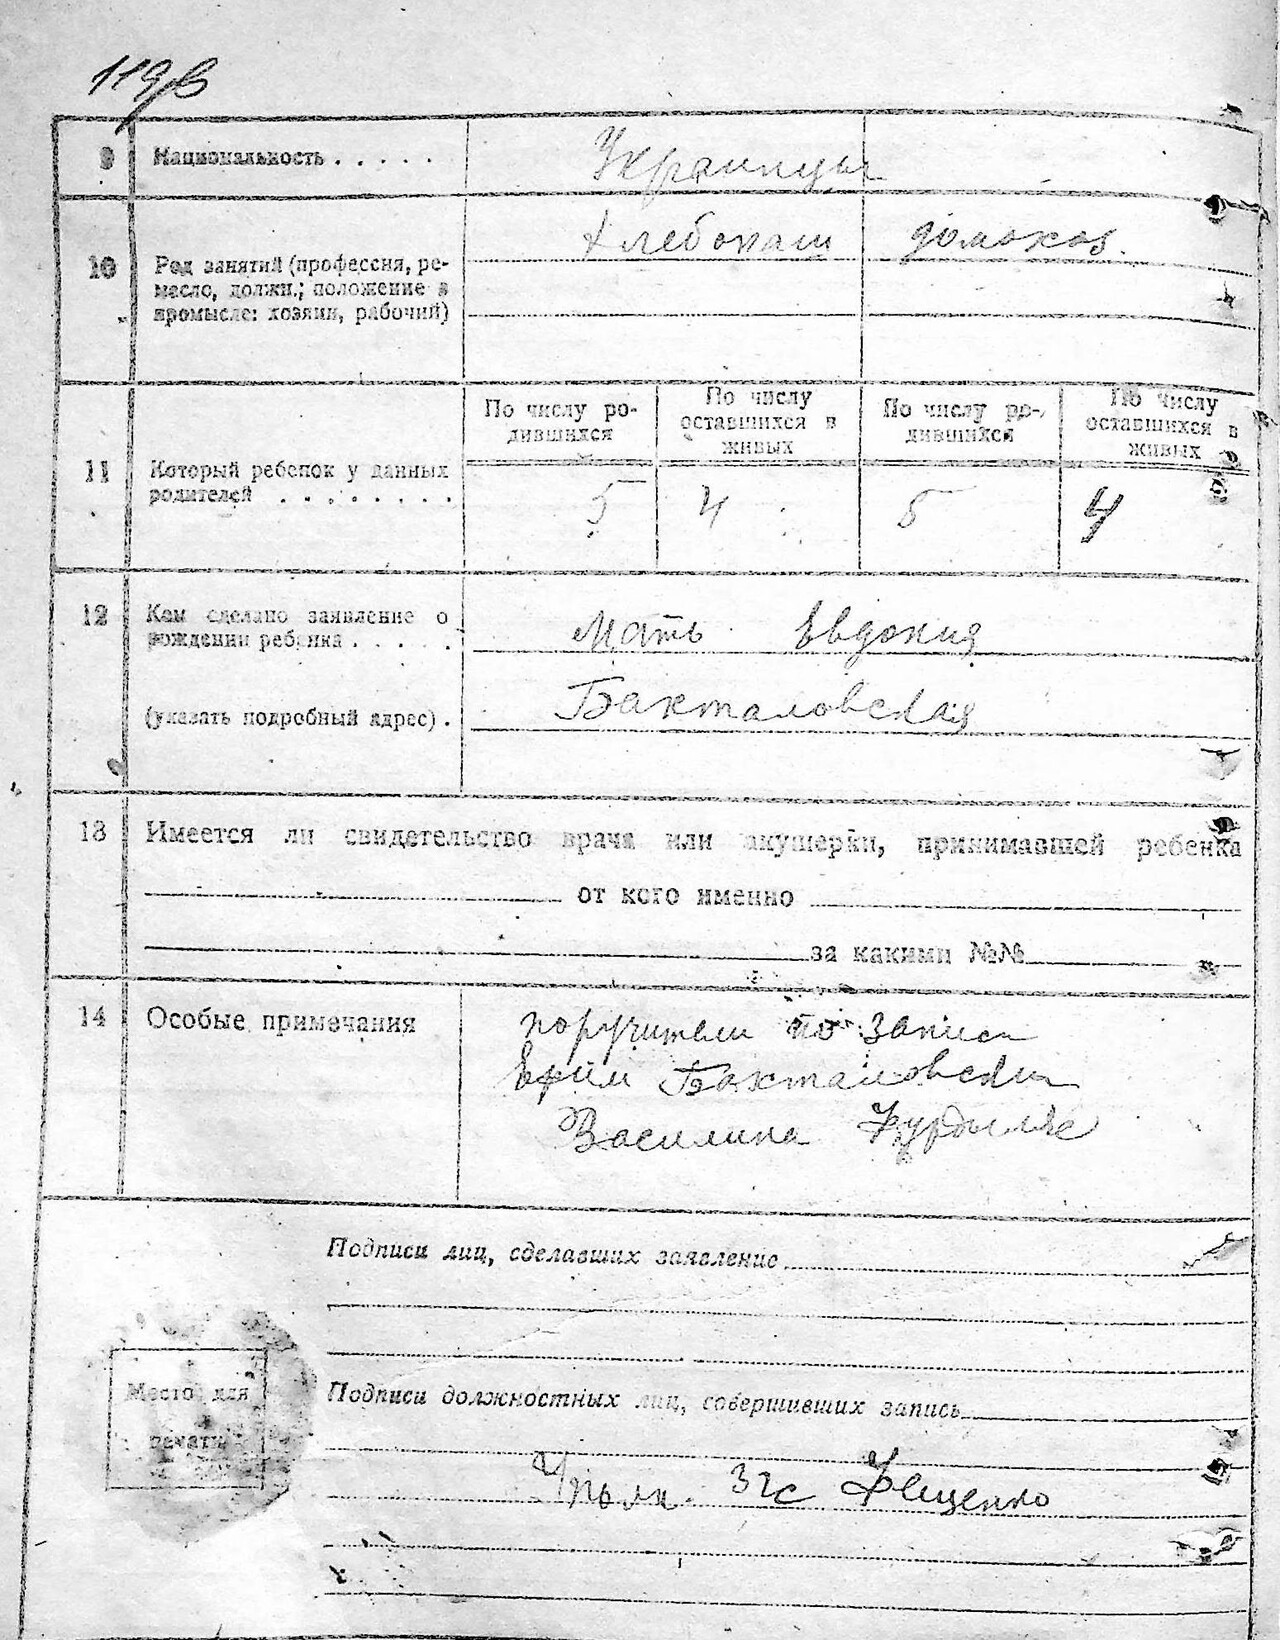 9 Национальность . . . . . Украинцы
Хлебопаш домохоз.
10 Род занятий (профессия, ре-
месло, должн.; положение в
промысле: хозяин, рабочий)
По числу ро- По числу По числу ро- По числу
дившихся оставшихся в дившихся оставшихся в
живых живых
11 Который ребенок у данных
родителей . . . . . . . . 5 4 5 4
12 Кем сделано заявление о
рождении ребенка . . . . . Мать Евдокия
(указать подробный адрес) . Бахталовская
13 Имеется ли свидетельство врача или акушерки, принимавшей ребенка
от кого именно
за какими №№
14 Особые примечания поручители по записи
Ефим Бахталовски
Василина
Подписи лиц, сделавших заявление
Место для
печати
Подписи должностных лиц, совершивших запись
Упълн. ЗГС Фещенко